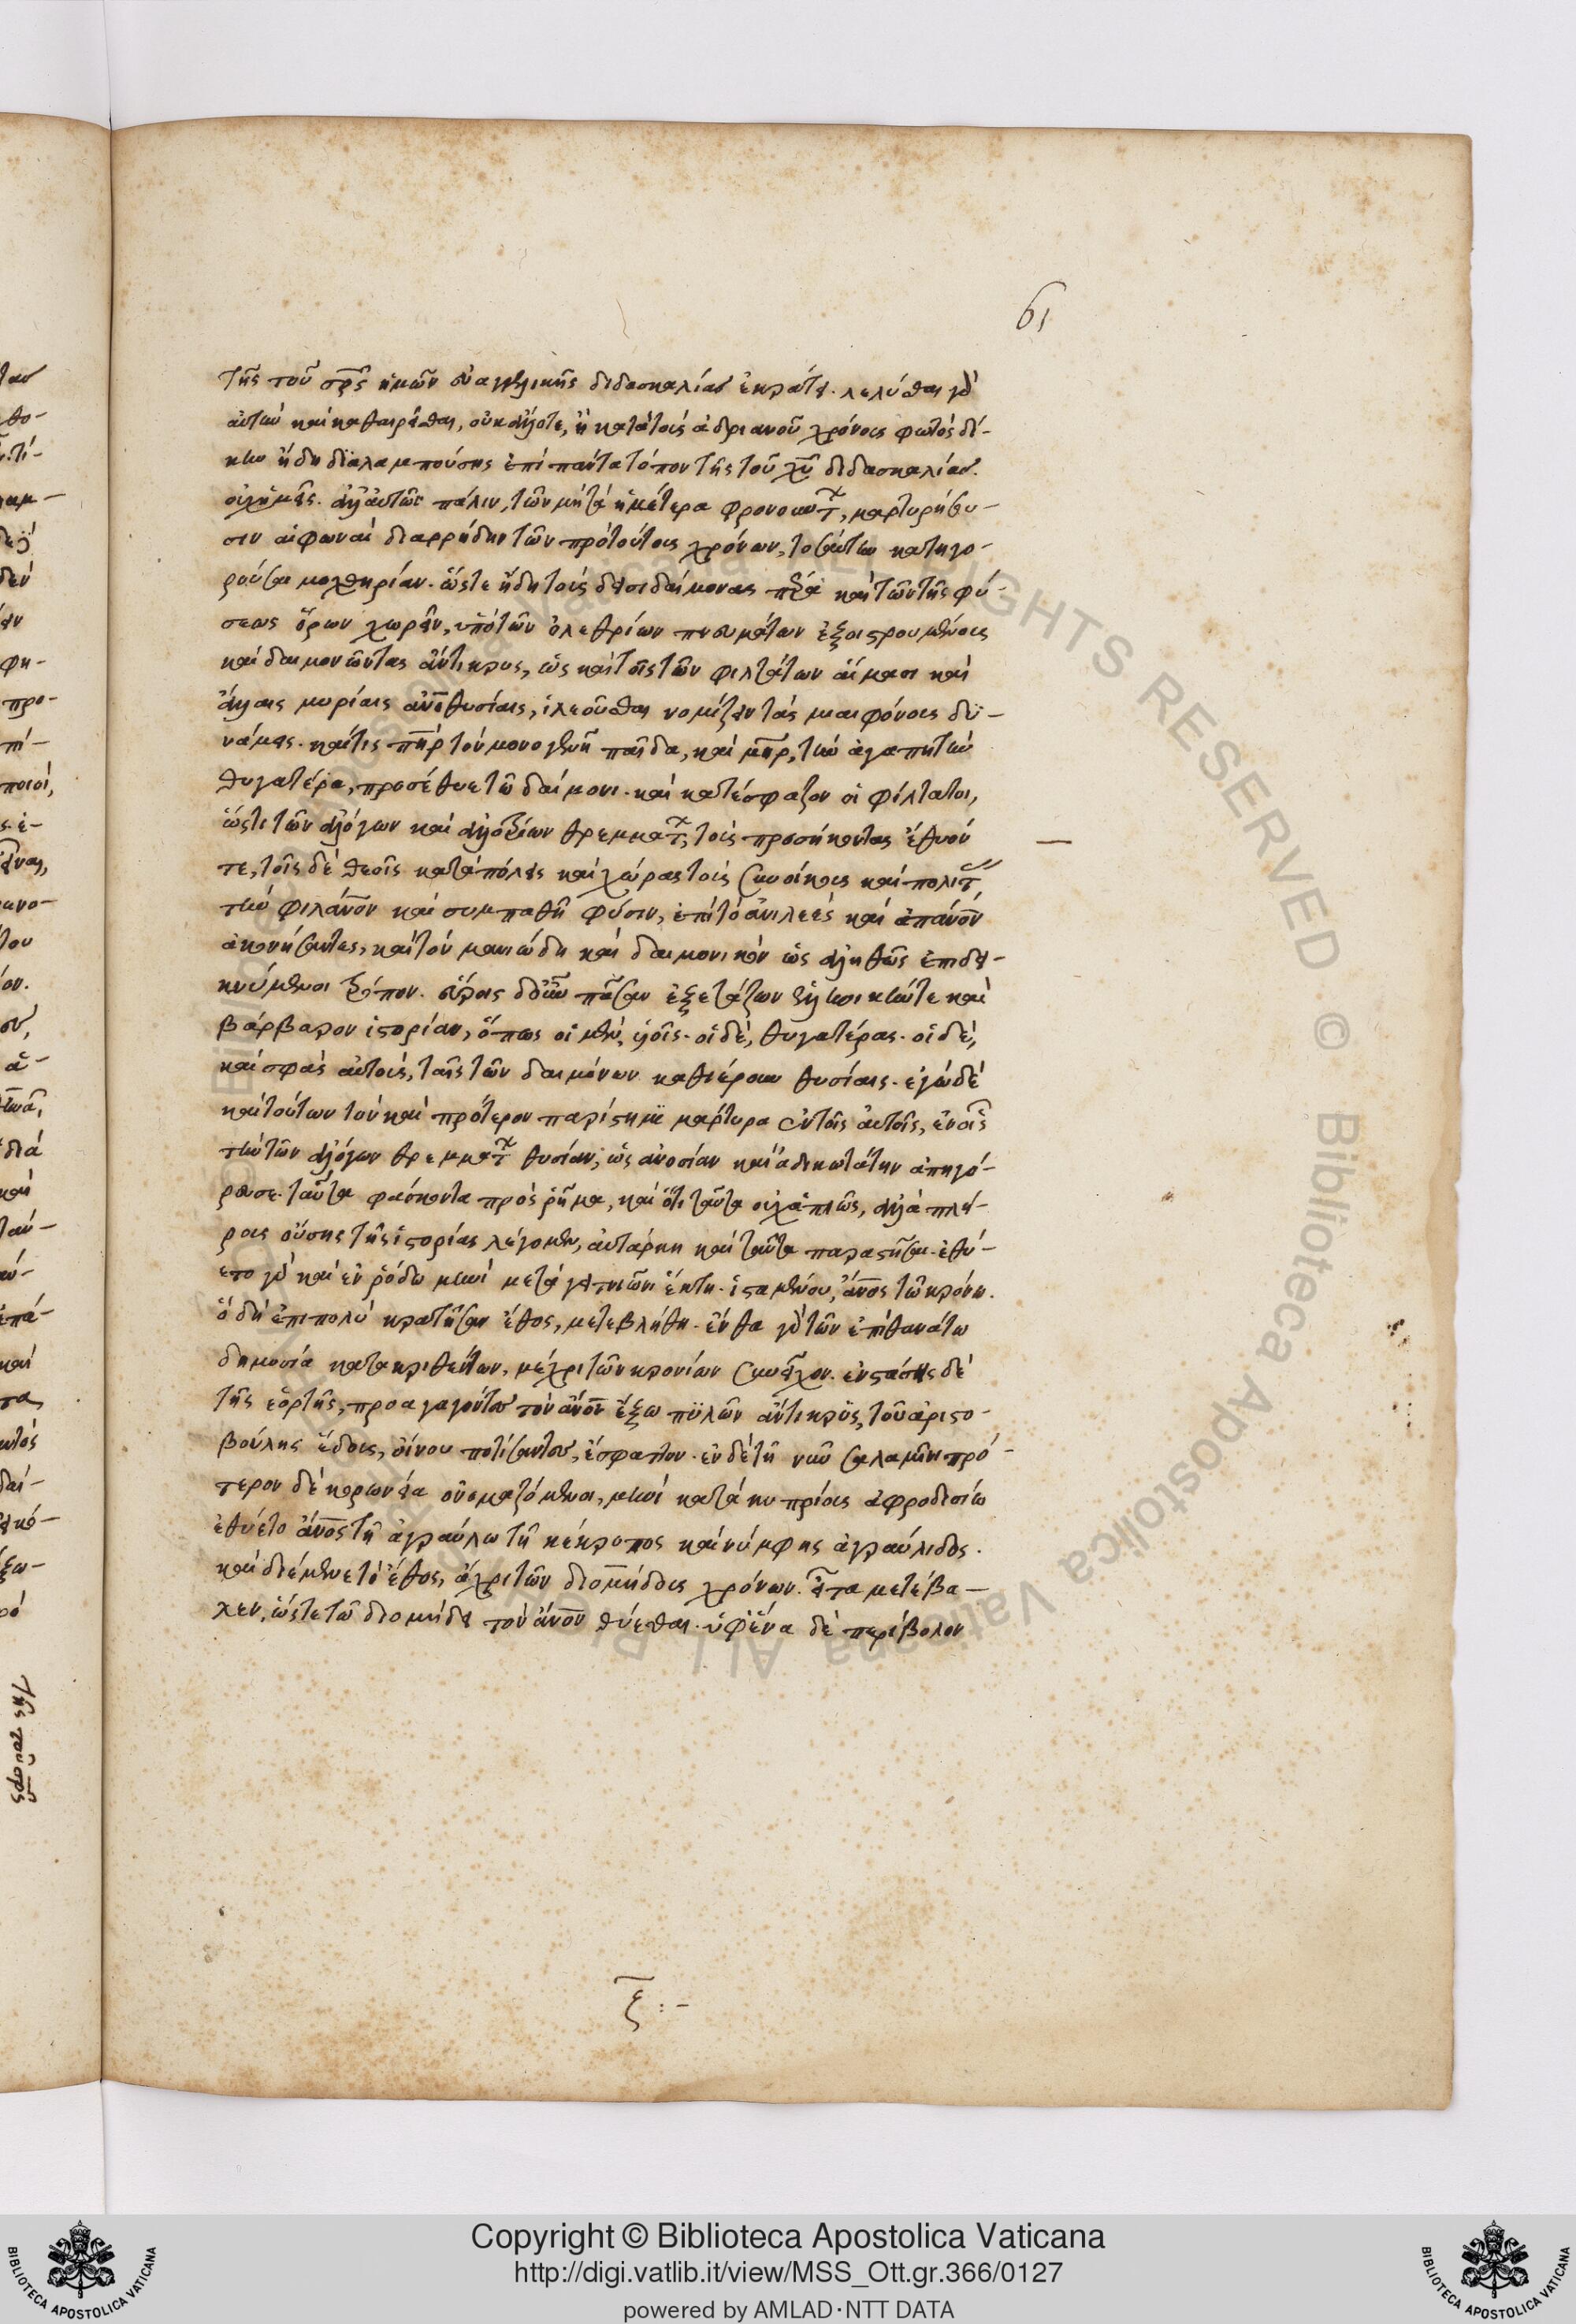 61
τῆς τοῦ σρ̅ς ἡμῶν εὐαγγελικῆς διδασκαλίας ἐκράτει. λελύσθαι γὰρ
αὐτὴν καὶ καθαιρεῖσθαι, οὐκ ἄλλοτε, ἢ κατὰ τοὺς ἀδριανοῦ χρόνους φωτὸς δί-
κην ἤδη διαλαμπούσης ἐπὶ πάντα τόπον τῆς τοῦ χυ̅ διδασκαλίας.
οὐχ ἡμεῖς. ἀλλ' αὐτῶν πάλιν, τῶν μὴ τὰ ἡμέτερα φρονούντων, μαρτυρήσου-
σιν αἱ φωναὶ διαρρήδην τῶν πρὸ τούτους χρόνων, τοσαύτην κατηγο-
ροῦσαι μοχθηρίαν. ὥστε ἤδη τοὺς δεισιδαίμονας πέρα καὶ τῶν τῆς φύ-
σεως ὅρων χωρεῖν, ὑπὸ τῶν ὀλεθρίων πνευμάτων ἐξοιστρουμένους
καὶ δαιμονῶντας ἄντικρυς, ὡς καὶ τοῖς τῶν φιλτάτων αἵμασι καὶ
ἄλλαις μυρίαις ἀνο̅θυσίαις, ἱλεοῦσθαι νομίζειν τὰς μιαιφόνους δυ-
νάμεις. καί τις πη̅ρ τὸν μονογενῆ παῖδα, καὶ μη̅ρ, τὴν ἀγαπητὴν
θυγατέρα, προσέθυε τῷ δαίμονι. καὶ κατέσφαζον οἱ φίλτατοι,
ὥς τι τῶν ἀλόγων καὶ ἀλλοτρίων θρεμμάτων, τοὺς προσήκοντας ἔθυόν
τε, τοῖς δὲ θεοῖς κατὰ πόλεις καὶ χώρας τοὺς συνοίκους καὶ πολίτας,
τὴν φιλάνο̅ν καὶ συμπαθῆ φύσιν, ἐπὶ τὸ ἀνιλεὲς καὶ ἀπάνο̅ν
ἀκονήσαντες, καὶ τὸν μανιώδη καὶ δαιμονικὸν ὡς ἀληθῶς ἐπιδει-
κνύμενοι τρόπον. εὕροις δ' οὖν πᾶσαν ἐξετάζων ἑλληνικήν τε καὶ
βάρβαρον ἱστορίαν, ὅπως οἱ μὲν, υἱοῖς. οἱ δὲ, θυγατέρας. οἱ δὲ,
καὶ σφᾶς αὐτοὺς, ταῖς τῶν δαιμόνων καθιέρουν θυσίαις. ἐγὼ δὲ
καὶ τούτων τὸν καὶ πρότερον παρίστημι μάρτυρα ἐν τοῖς αὐτοῖς, ἐν οἷς
τὴν τῶν ἀλόγων θρεμμάτων θυσίαν, ὡς ἀνοσίαν καὶ ἀδικωτάτην ἀπηγό-
ρευσε. ταῦτα φάσκοντα πρὸς ῥῆμα, καὶ ὅτι ταῦτα οὐχ ἁπλῶς, ἀλλὰ πλή-
ρους οὔσης τῆς ἱστορίας λέγομεν, αὐτάρκη καὶ ταῦτα παραστῆσαι. ἐθύ-
ετο γὰρ καὶ ἐν ῥόδῳ μηνὶ μεταγειτνιῶνι ἕκτη. ἱσταμένου, ἄνο̅ς τῷ κρόνῳ.
ὃ δὴ ἐπιπολὺ κρατῆσαν ἔθος, μετεβλήθη. ἕνθα γὰρ τῶν ἐπὶ θανάτῳ
δημοσίᾳ κατακριθέντων, μέχρι τῶν κρονίων συνεῖχον. ἐνστάσης δὲ
τῆς ἑορτῆς, προαγαγόντες τὸν ἄνο̅ν ἔξω πυλῶν ἄντικρυς, τοῦ ἀριστο-
βούλης ἕδους, οἴνου ποτίσαντες, ἔσφαττον. ἐν δὲ τῇ νῦν σαλαμῖνι πρό-
τερον δὲ κορωνεία ὀνομαζόμενοι, μηνὶ κατὰ κυπρίους ἀφροδισίῳ
ἐθύετο ἄνο̅ς τῇ ἀγραύλῳ τῇ κέκροπος καὶ νύμφης ἀγραύλιδος.
καὶ διέμενε τὸ ἔθος, ἄχρι τῶν διομήδους χρόνων. εἶτα μετέβα-
λεν, ὥστε τῷ διομήδει τὸν ἄνο̅ν θύεσθαι. ὑφ' ἕνα δὲ περίβολον
ξ̅ :-
Copyright © Biblioteca Apostolica Vaticana
http://digi.vatlib.it/view/MSS_Ott.gr.366/0127
powered by AMLAD·NTT DATA